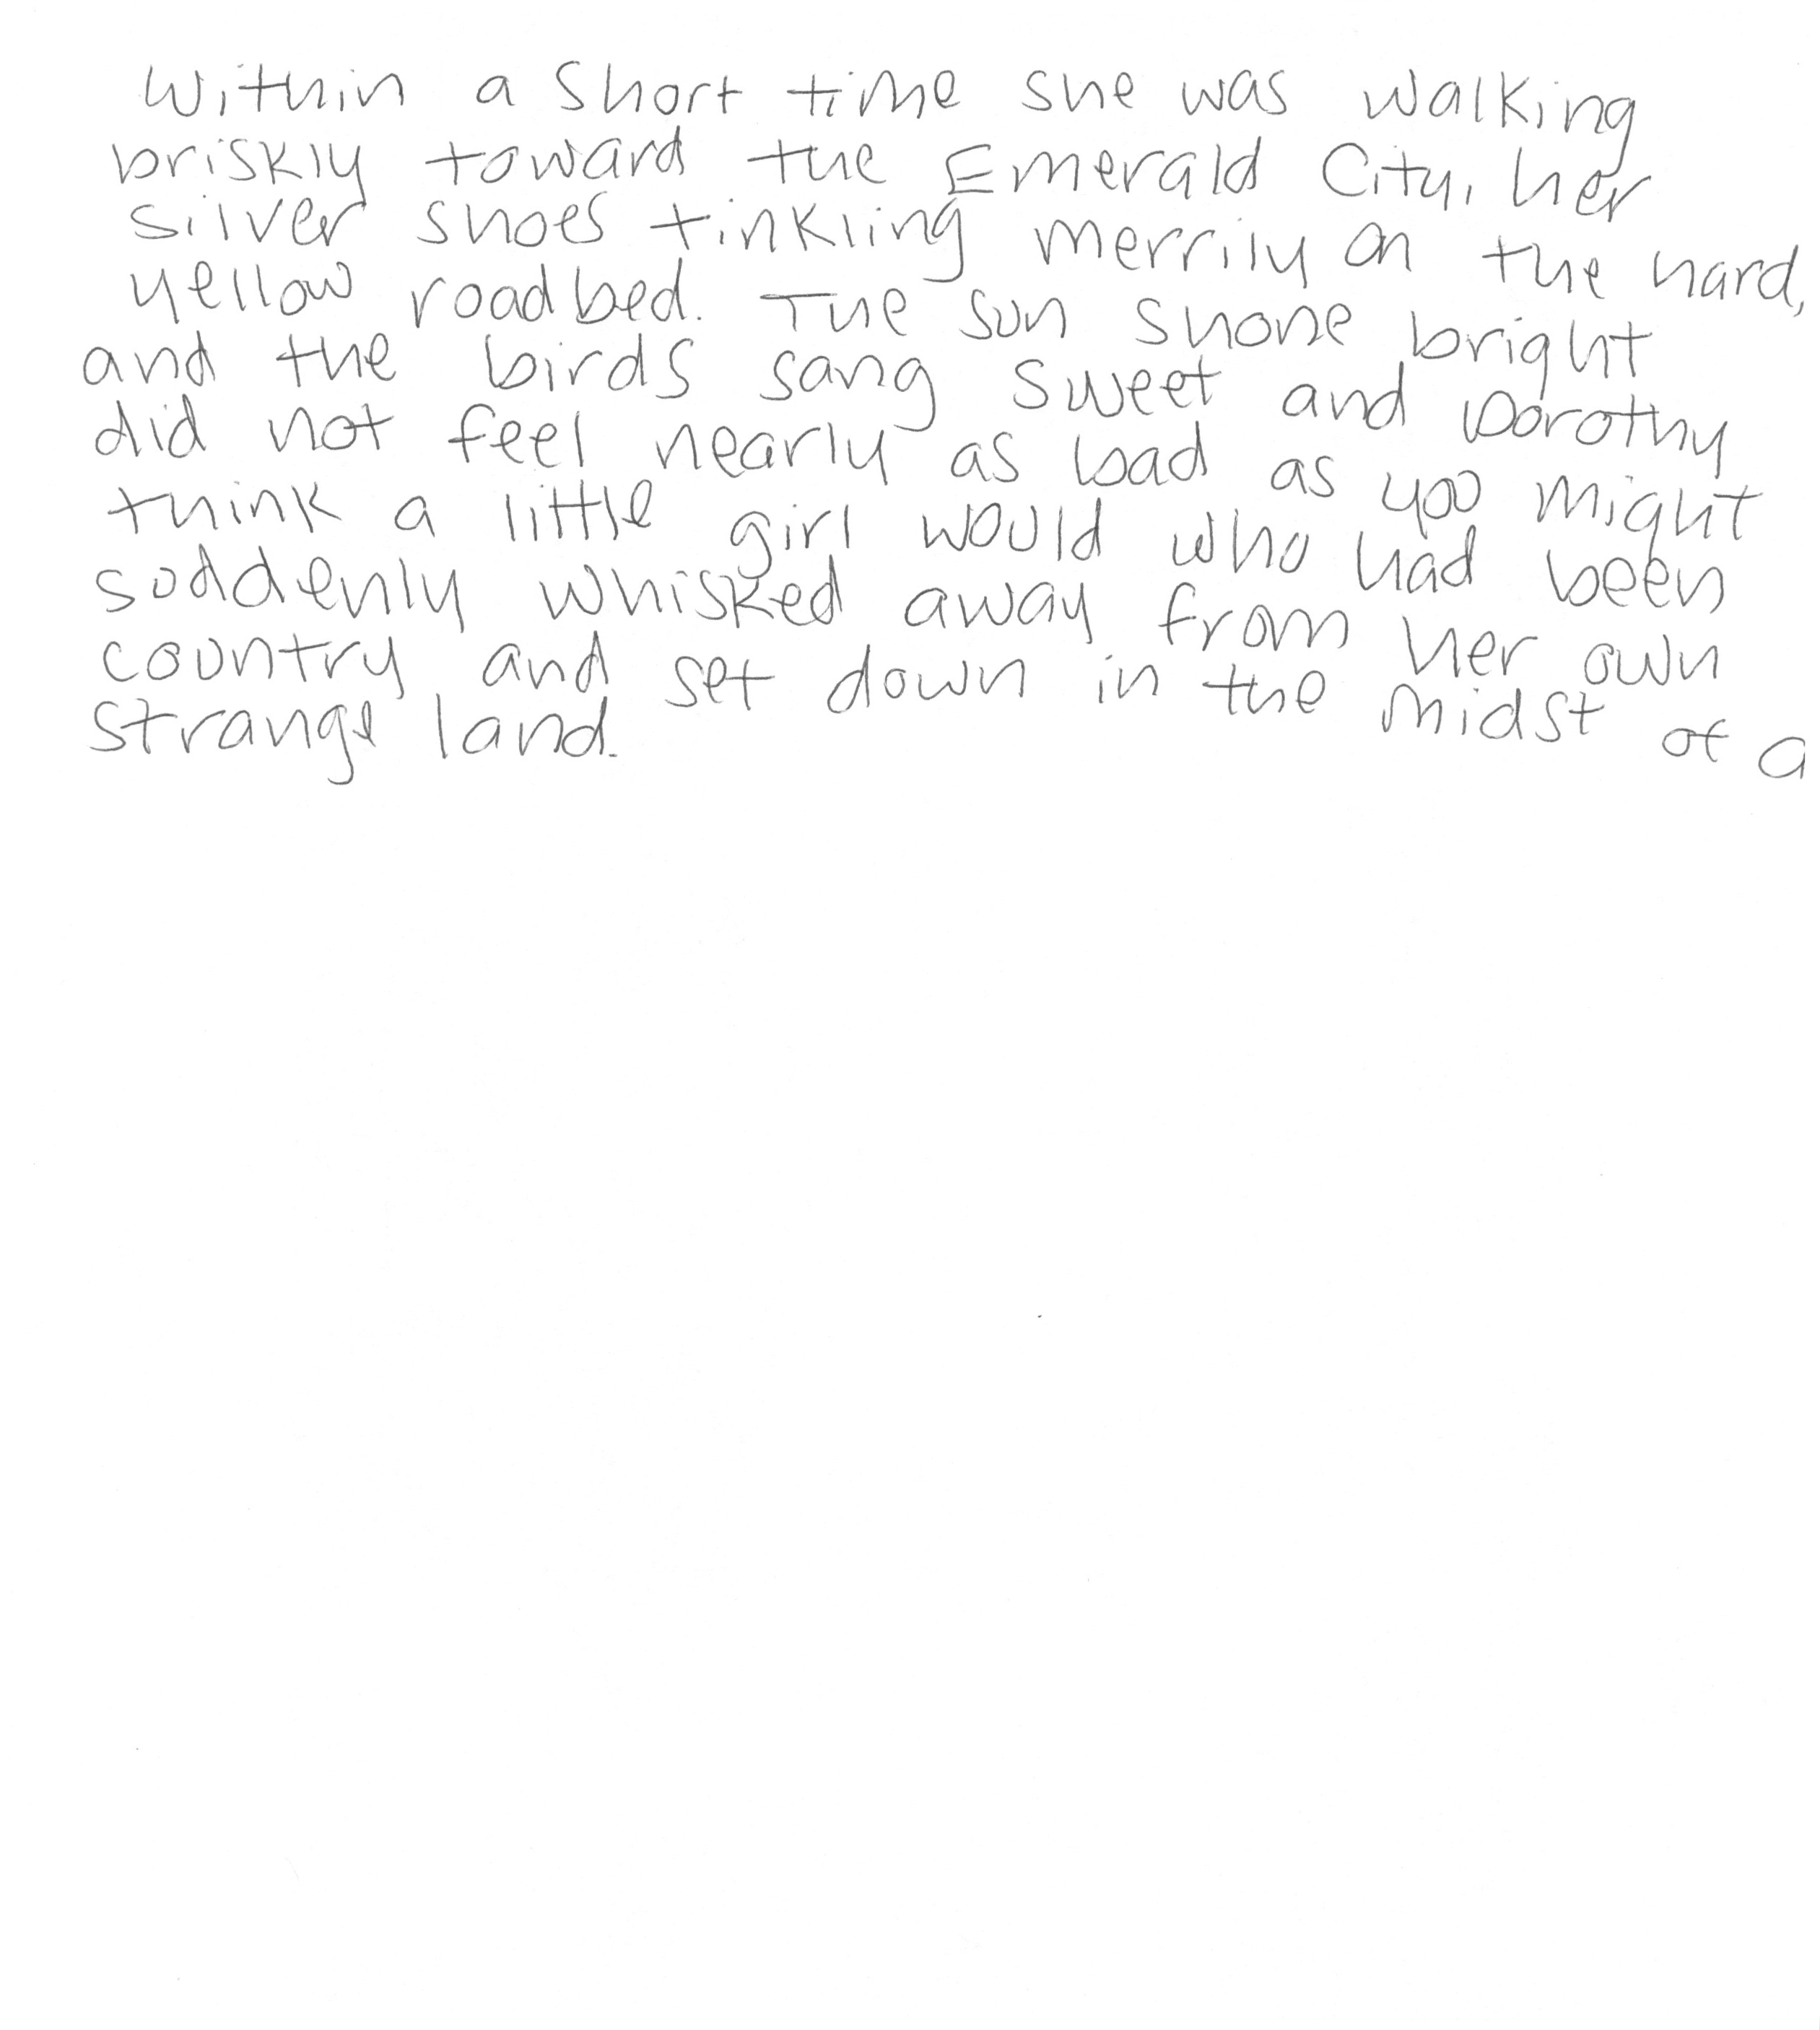 Within a short time she was walking
briskly toward the Emerald City, her
silver shoes tinkling merrily on the hard,
yellow roadbed. The sun shone bright
and the birds sang sweet and Dorothy
did not feel nearly as bad as you might
think a little girl would who had been
suddenly whisked away from her own
country and set down in the midst of a
strange land.